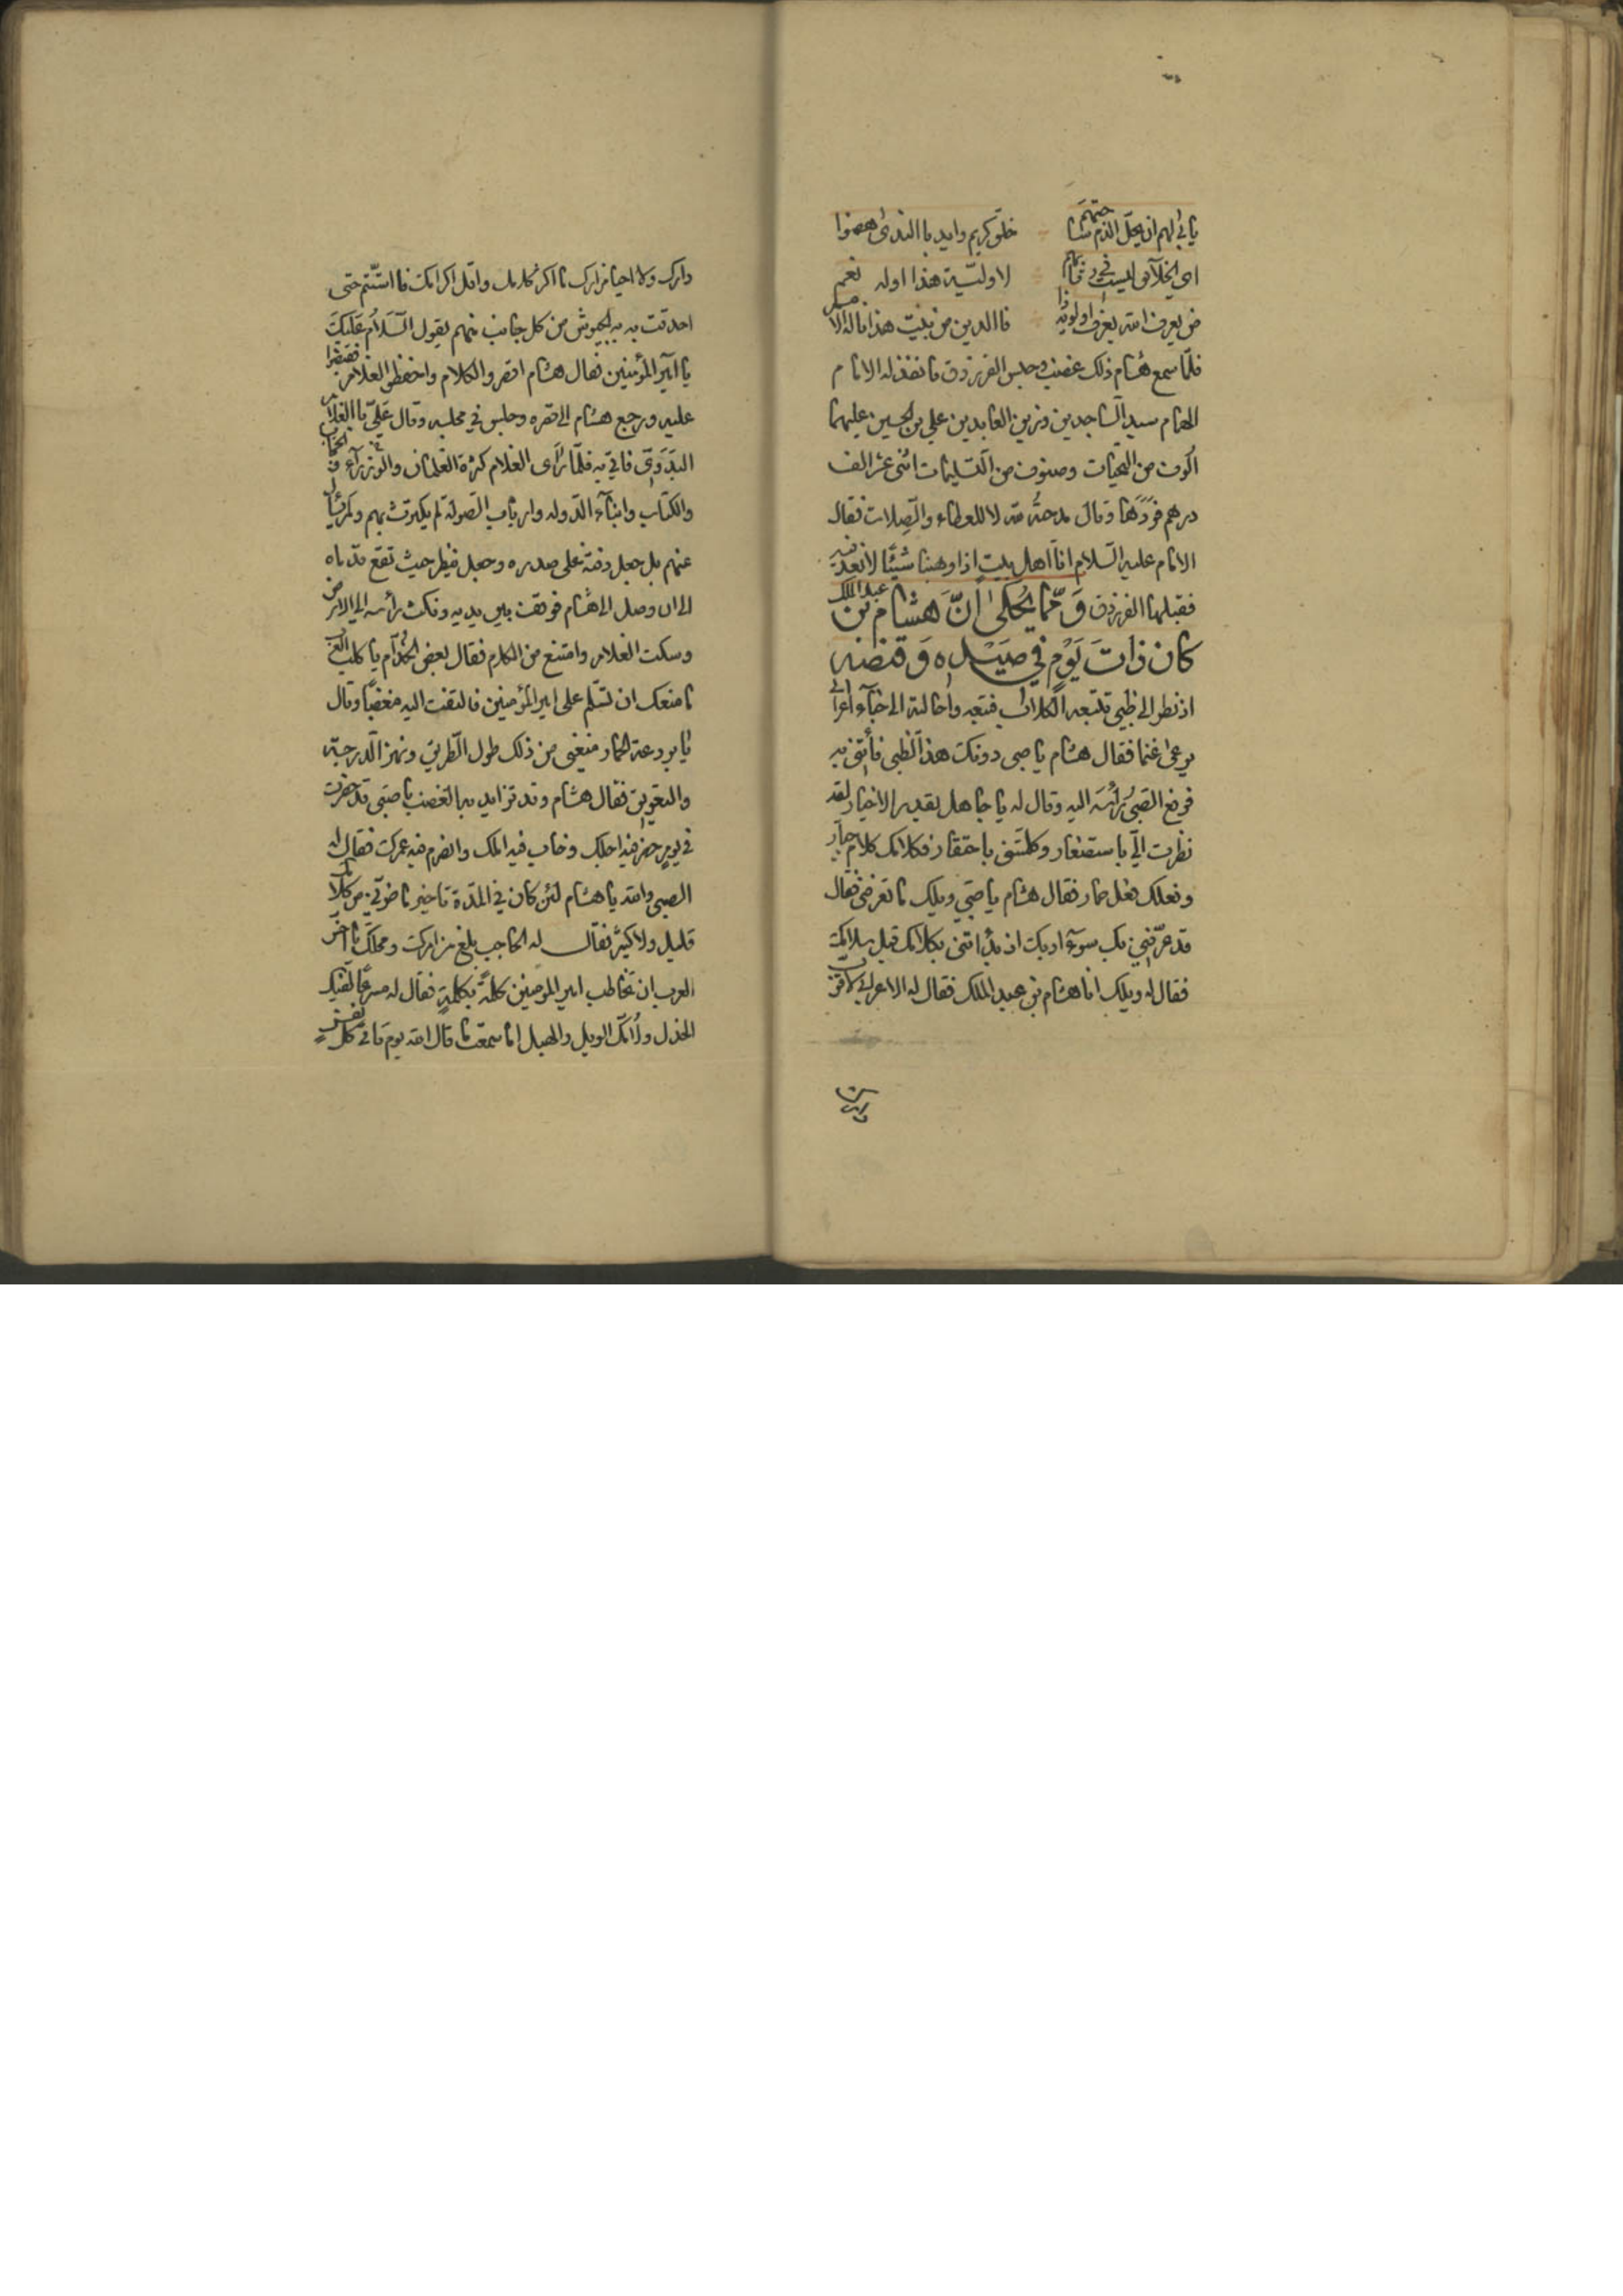 يأبى لهم ان يحلّ الذم ساحتهم خلق كريم وايد باالندى هضم
اى الخلآئق ليست فى رقابهم لاوليّة هذا اوله نعم
من يعرف الله يعرف اولويّة ذا فاالدين من بيت هذا ناله الامم
فلمّا سمع هشام ذلك غضب وحبس الفرزدق فانفذ له الامام
الهمام سيد السّاجدين وزين العابدين علي بن الحسين عليهما
الوف من التحيّات وصنوف من التسليمات اثنى عشر الف
درهم فردّها وقال مدحته لله لا للعطاء والصّلات فقال
الامام عليه السّلام انّا اهل بيت اذا وهبنا شيئًا لا نعد فيه
فقبلها الفرزدق وَممّا يُحكىٰ انَّ هَشام بن عبد الملك
كان ذاتَ يَوْم في صَيْده وَقنصه
اذ نظر الى ظبي تتبعه الكلاب فتبعه واحالته الى خبآء اعرابي
يرعىٰ غنما فقال هشام يا صبى دونك هذا الظبى فأتنى به
فرفع الصّبى رأسه اليه وقال له يا جاهل بقدر الاخيار لقد
نظرت الىّ باستصغار وكلمتنى باحتقار فكلامك كلام جبّار
وفعلك فعل حمار فقال هشام يا صبّي ويلك ما تعرفنى فقال
قد عرّفنى بك سوء ادبك اذ بدأتنى بكلامك قبل سلامك
فقال له ويلك انا هشام بن عبد الملك فقال له الاعرابى لا قرّب
دارك ولا احيا مزارك ما اكثر كلامك واقل اكرامك فما استتم حتى
احدقت به الجيوش من كل جانب منهم يقول السَّلام عَلَيكَ
يا امير المؤمنين فقال هشام اقصروا الكلام واحفظوا الغلام فقبضوا
عليه ورجع هشام الى قصره وجلس في مجلسه وقال عَليّ باالغلام
البدَوىّ فاتي به فلمّا رَأى الغلام كثرة الغلمان والوزرآء والحجّاب
والكتّاب وابنآء الدّوله وارباب الصّولة لم يكترث بهم ولم يسأل
عنهم بل جعل ذقنه على صدره وجعل ينظر حيث تقع قدماه
الى ان وصل الى هشام فوقف بين يديه ونكث رأسه الى الارض
وسكت الغلام وامتنع من الكلام فقال بعض الخدّام يا كلب العرب
ما منعك ان تسّلم على امير المؤمنين فالتفت اليه مغضبًا وقال
يا بردعة الحمار منعنى من ذلك طول الطّريق ونهز الدّرجة
والتعويق فقال هشام وقد تزايد به الغضب يا صبّى قد حضرت
فى يوم حضر فيه اجلك وخاب فيه املك وانصرم فيه عمرك فقال له
الصبى والله يا هشام لئن كان في المدّة تاخير ما ضرّنى من كلامك
قليل ولا كثير فقال له الحاجب بلغ من امرك ومحلك يا اخسّ
العرب ان تخاطب امير المومنين كلمةً بكلمةٍ فقال له مسرعًا لقيك
الخذل ولامّك الويل والهبل اما سمعت ما قال الله يوم تاتى كل نفسٍ